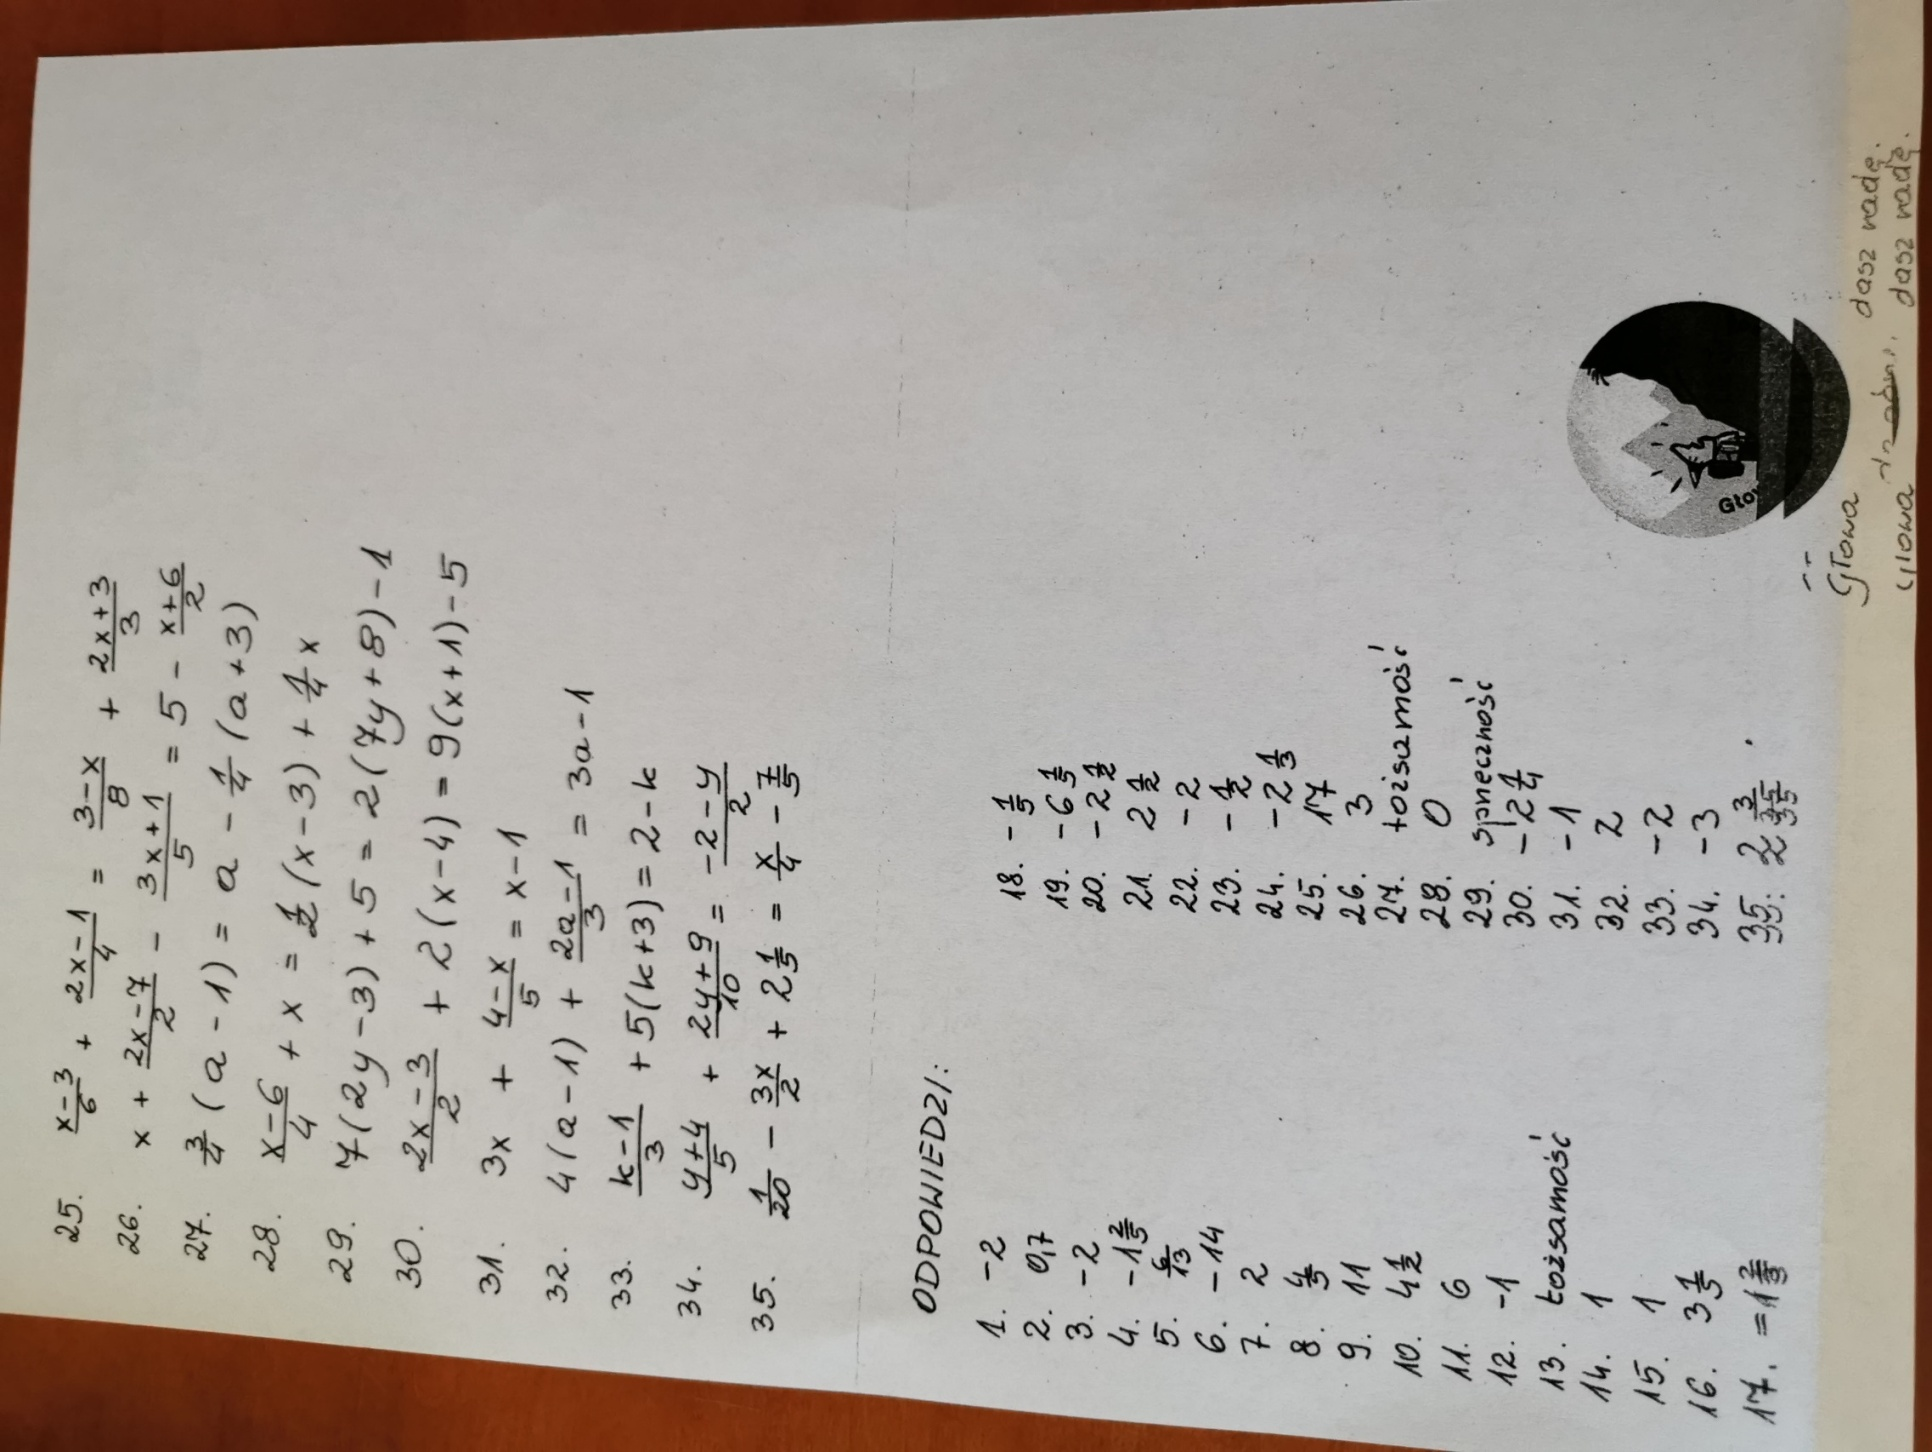 25. (x-3)/6 + (2x-1)/4 = (3-x)/8 + (2x+3)/3
26. x + (2x-7)/2 - (3x+1)/5 = 5 - (x+6)/2
27. 3/4 (a-1) = a - 1/4 (a+3)
28. (x-6)/4 + x = 1/2 (x-3) + 1/4 x
29. 7(2y-3)+5 = 2(7y+8)-1
30. (2x-3)/2 + 2(x-4) = 9(x+1)-5
31. 3x + (4-x)/5 = x-1
32. 4(a-1) + (2a-1)/3 = 3a-1
33. (k-1)/3 + 5(k+3) = 2-k
34. (y+4)/5 + (2y+9)/10 = (-2-y)/2
35. 1/20 - 3x/2 + 2 1/5 = x/4 - 7/5
ODPOWIEDZI:
1. -2
2. 0,7
3. -2
4. -1 2/5
5. 6/13
6. -14
7. 2
8. 4/5
9. 11
10. 4 1/2
11. 6
12. -1
13. tożsamość
14. 1
15. 1
16. 3 1/5
17. = 1
18. -1/5
19. -6 1/3
20. -2 1/2
21. 2 1/2
22. -2
23. -1/2
24. -2 1/3
25. 17
26. 3
27. tożsamość
28. 0
29. sprzeczność
30. -2 1/4
31. -1
32. 2
33. -2
34. -3
35. 2 3/35
Głowa dasz radę.
dasz radę.